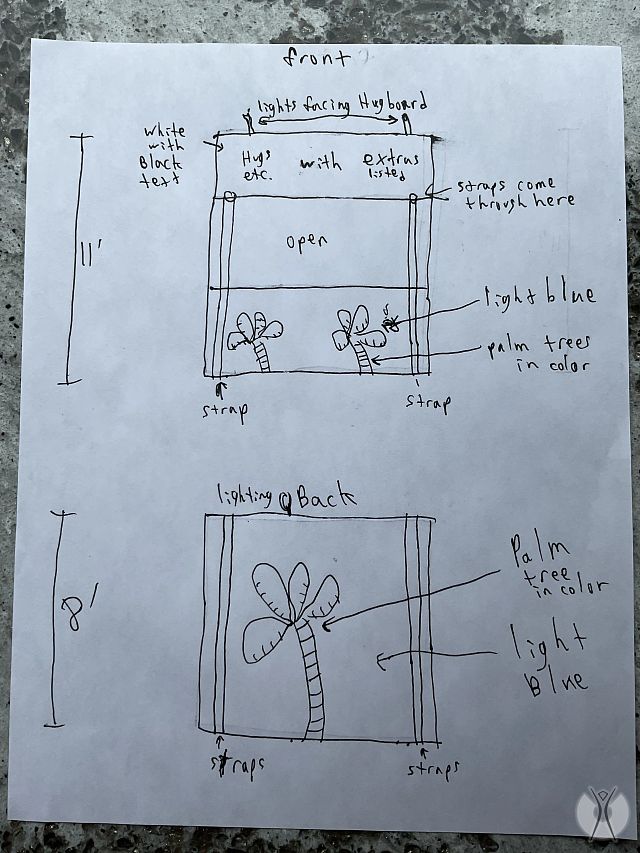 front
lights facing Hugboard
white
with
Black
text
Hugs
etc.
with
extras
listed
straps come
through here
11'
open
light blue
palm trees
in color
strap
strap
lighting
Back
8'
Palm
tree
in color
light
Blue
straps
straps